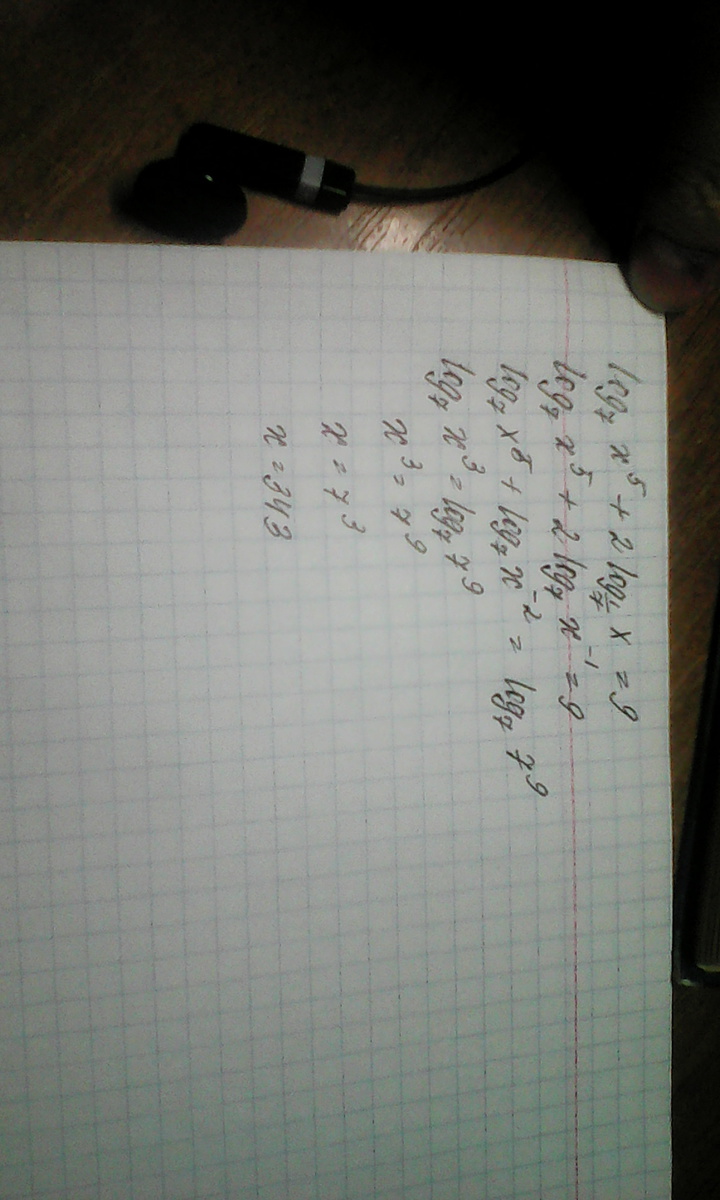 log₇ x⁵ + 2 log_{1/7} x = 9
log₇ x⁵ + 2 log₇ x⁻¹ = 9
log₇ x⁵ + log₇ x⁻² = log₇ 7⁹
log₇ x³ = log₇ 7⁹
x³ = 7⁹
x = 7³
x = 343